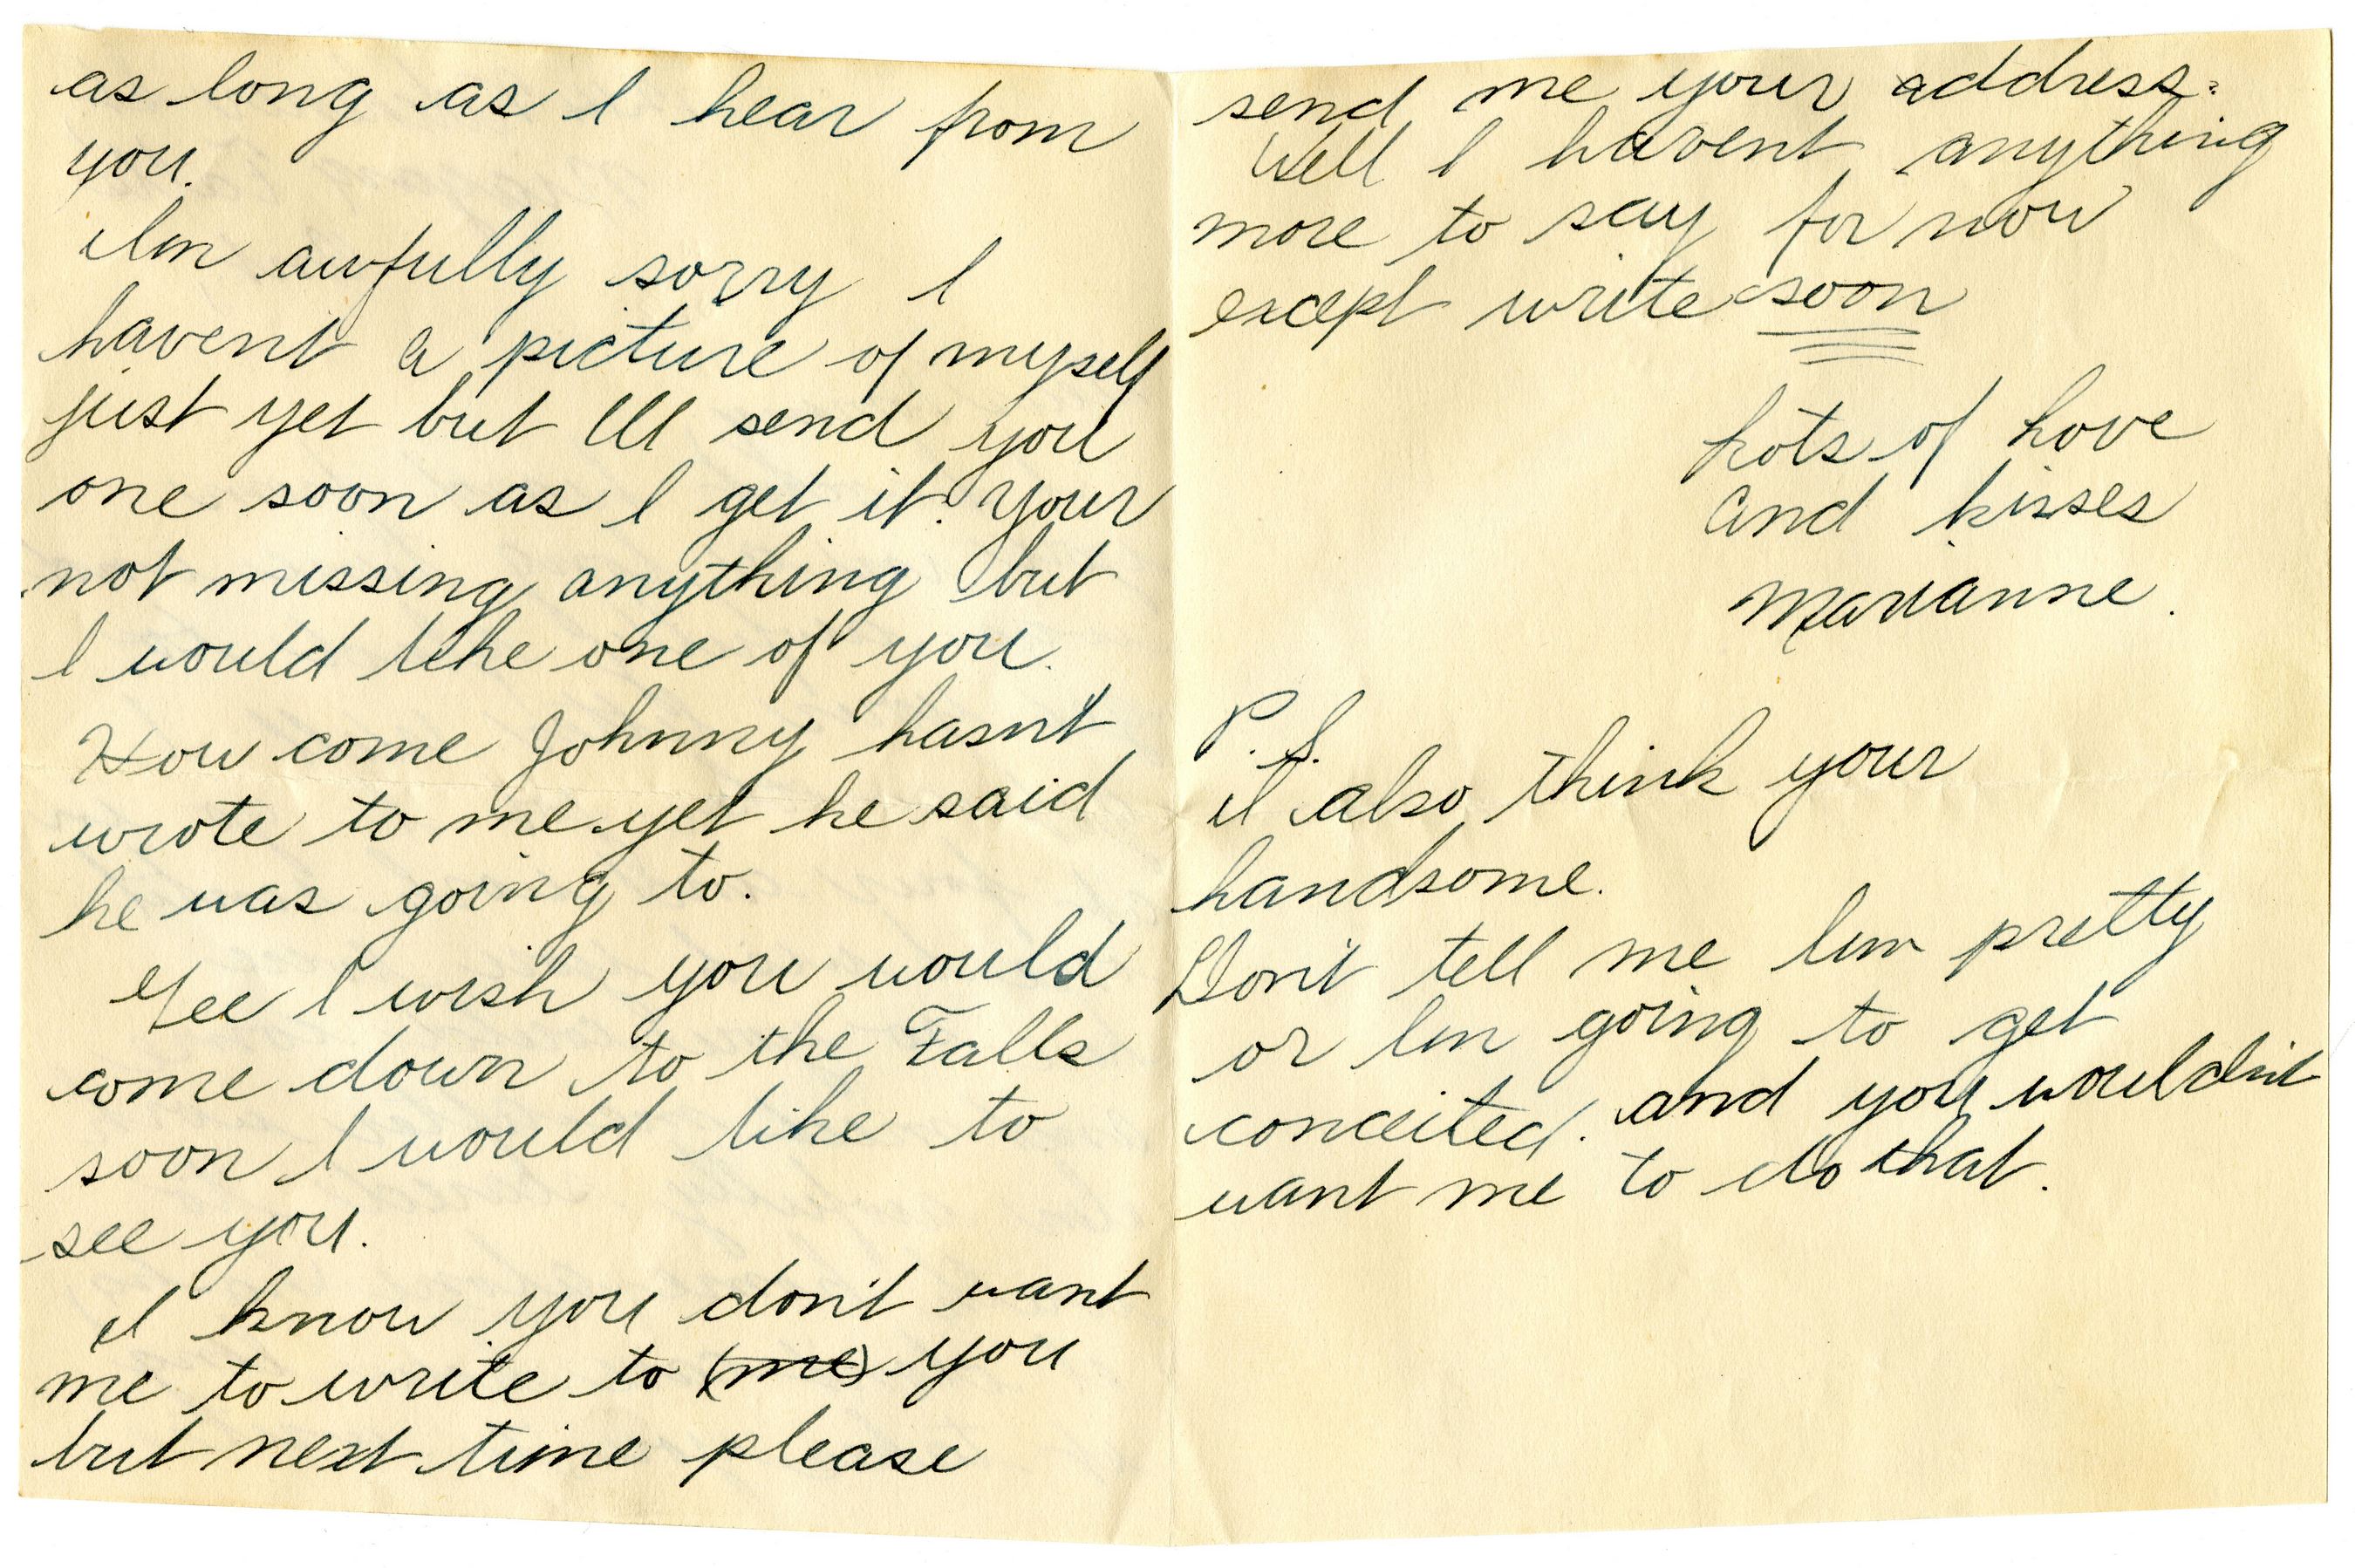 as long as I hear from
you.
Im awfully sorry I
havent a picture of myself
just yet but Ill send you
one soon as I get it. your
not missing anything but
I would like one of you.
How come Johnny hasnt
wrote to me yet he said
he was going to.
Gee I wish you would
come down to the Falls
soon I would like to
see you.
I know you don't want
me to write to (me) you
but next time please
send me your address.
Well I havent anything
more to say for now
except write soon
Lots of Love
and kisses
Marianne.
P.S.
I also think your
handsome.
Don't tell me Im pretty
or Im going to get
conceited. and you wouldn't
want me to do that.